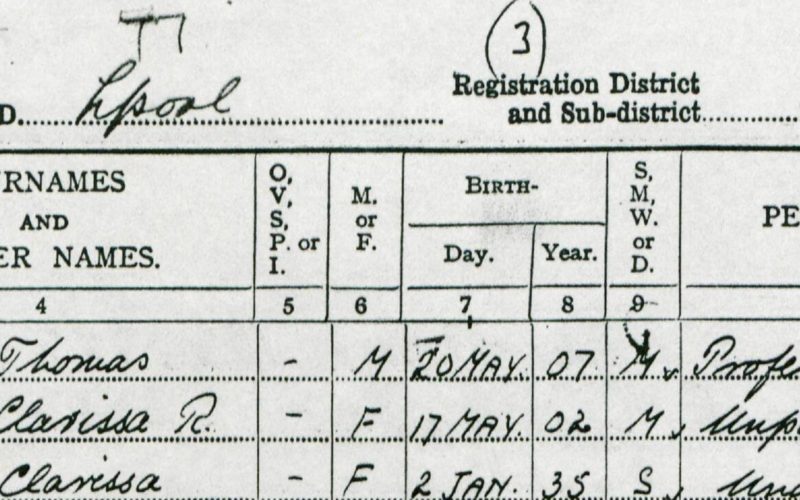 3
D. Lpool Registration District
and Sub-district
URNAMES
AND
ER NAMES.
O,
V,
S,
P. or
I.
M.
or
F.
BIRTH-
Day.
Year.
S,
M,
W.
or
D.
PE
4 5 6 7 8 9
Thomas - M 20 MAY. 07 M. Profe
Clarissa R. - F 17 MAY. 02 M. Unp
Clarissa - F 2 JAN. 35 S. Un